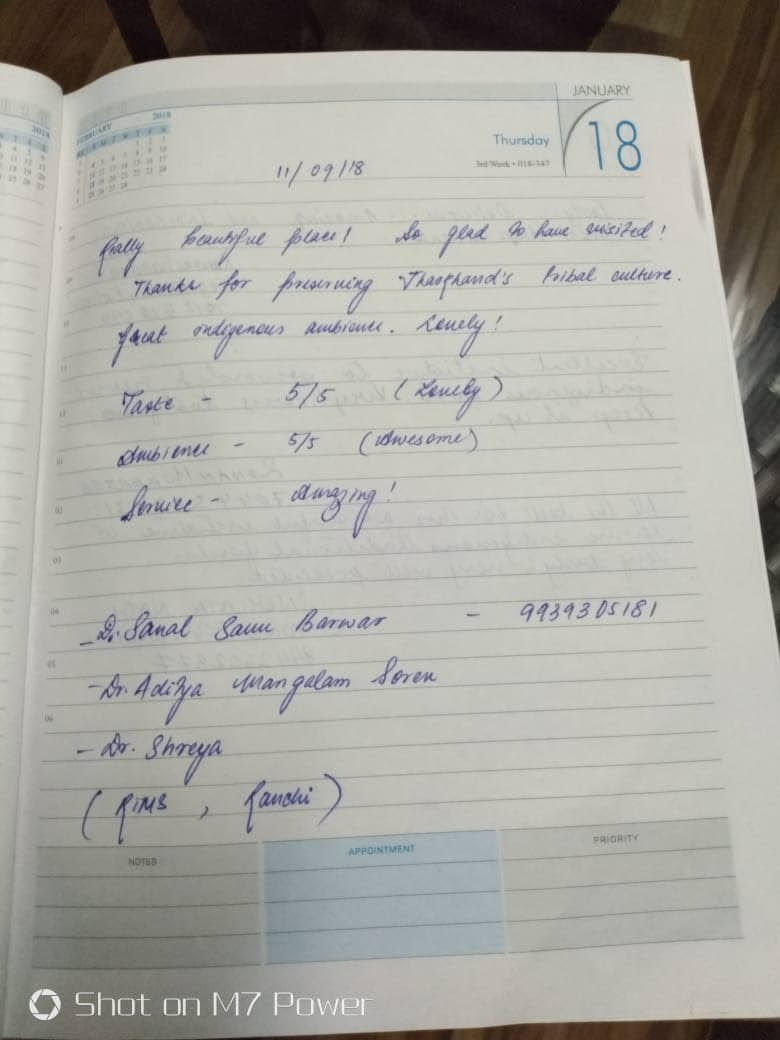 JANUARY
18
Thursday
3rd Week • 018-347
FEBRUARY 2018
2018
11/09/18
Really beautiful place! So glad to have visited!
Thanks for preserving Jharkhand's tribal culture.
Great indigenous ambience. Lovely!
Taste - 5/5 (Lovely)
Ambience - 5/5 (Awesome)
Service - Amazing!
- Dr. Sanal Barwar - 9939305181
- Dr. Aditya Mangalam Soren
- Dr. Shreya
(RIMS, Ranchi)
NOTES
APPOINTMENT
PRIORITY
Shot on M7 Power